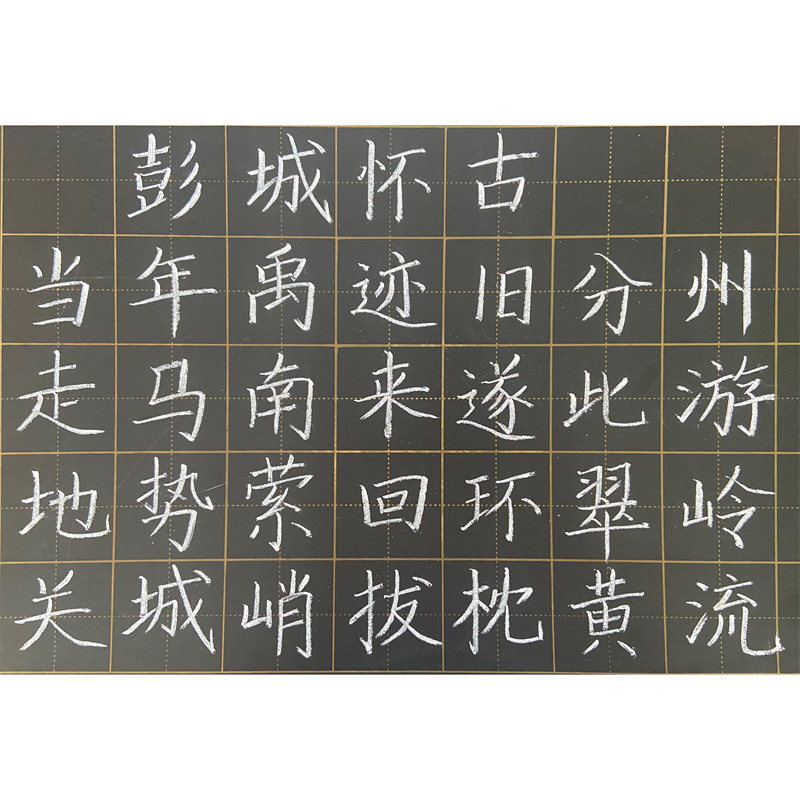 彭城怀古
当年禹迹旧分州
走马南来遂此游
地势萦回环翠岭
关城峭拔枕黄流